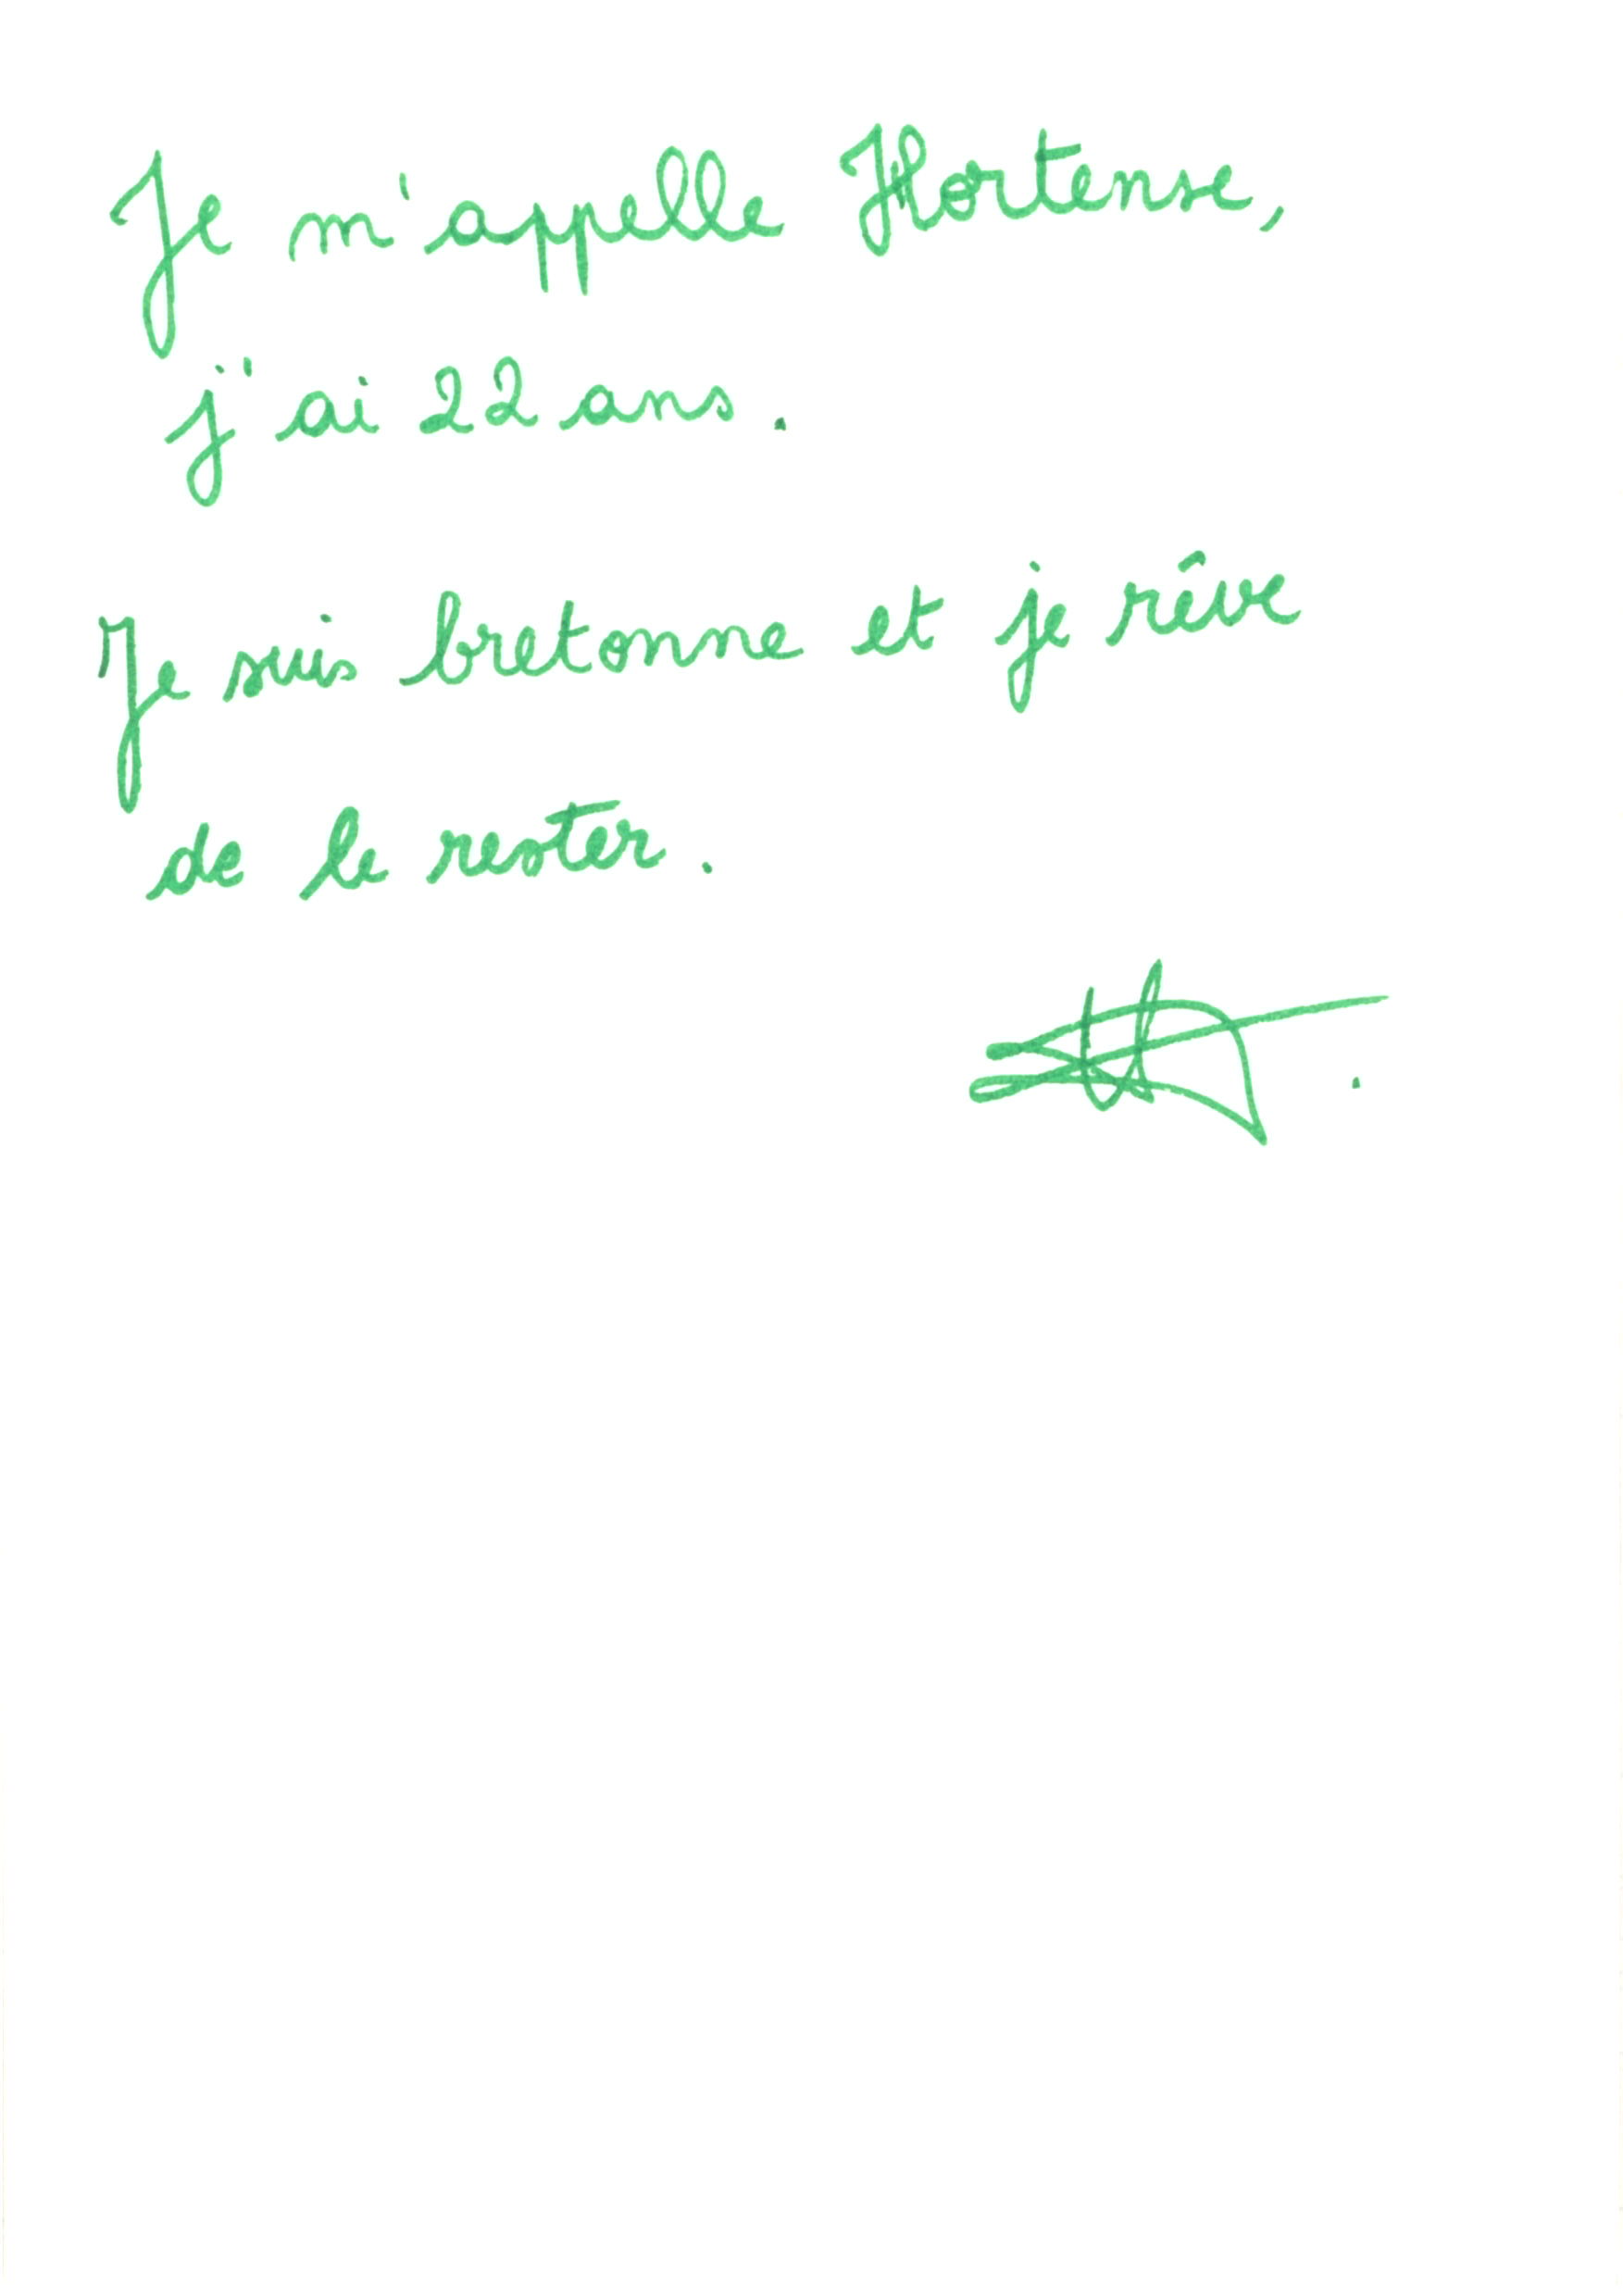 Je m'appelle Hortense,
j'ai 22 ans.
Je suis bretonne et je rêve
de le rester.